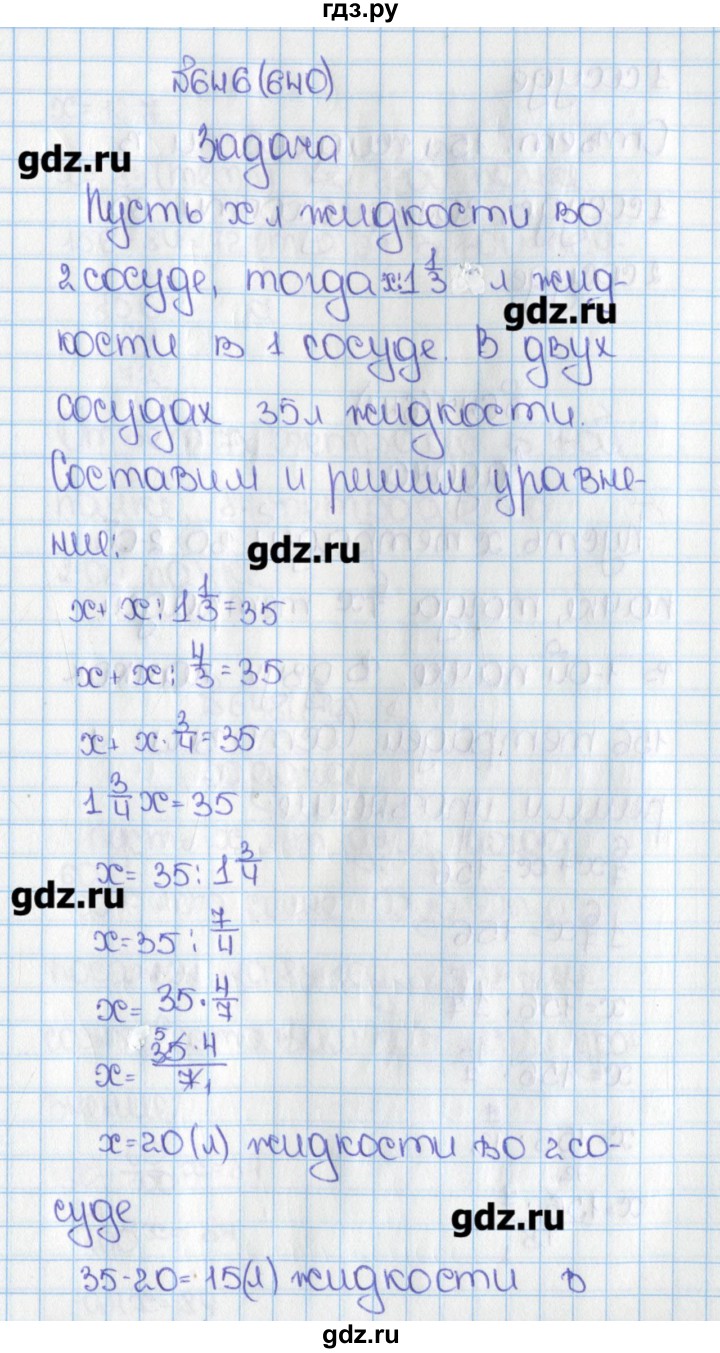 гдз.ру
№646(640)
gdz.ru
Задача
Пусть x л жидкости во
2 сосуде, тогда x:1 1/3 л жид-
gdz.ru
кости в 1 сосуде. В двух
сосудах 35л жидкости.
Составим и решим уравне-
ние:
gdz.ru
x + x : 1 1/3 = 35
x + x : 4/3 = 35
x + x · 3/4 = 35
1 3/4 x = 35
x = 35 : 1 3/4
gdz.ru
x = 35 : 7/4
x = 35 · 4/7
x = 35 5 · 4 / 7 1
x = 20 (л) жидкости во 2 со-
суде
gdz.ru
35 - 20 = 15(л) жидкости в
gdz.ru